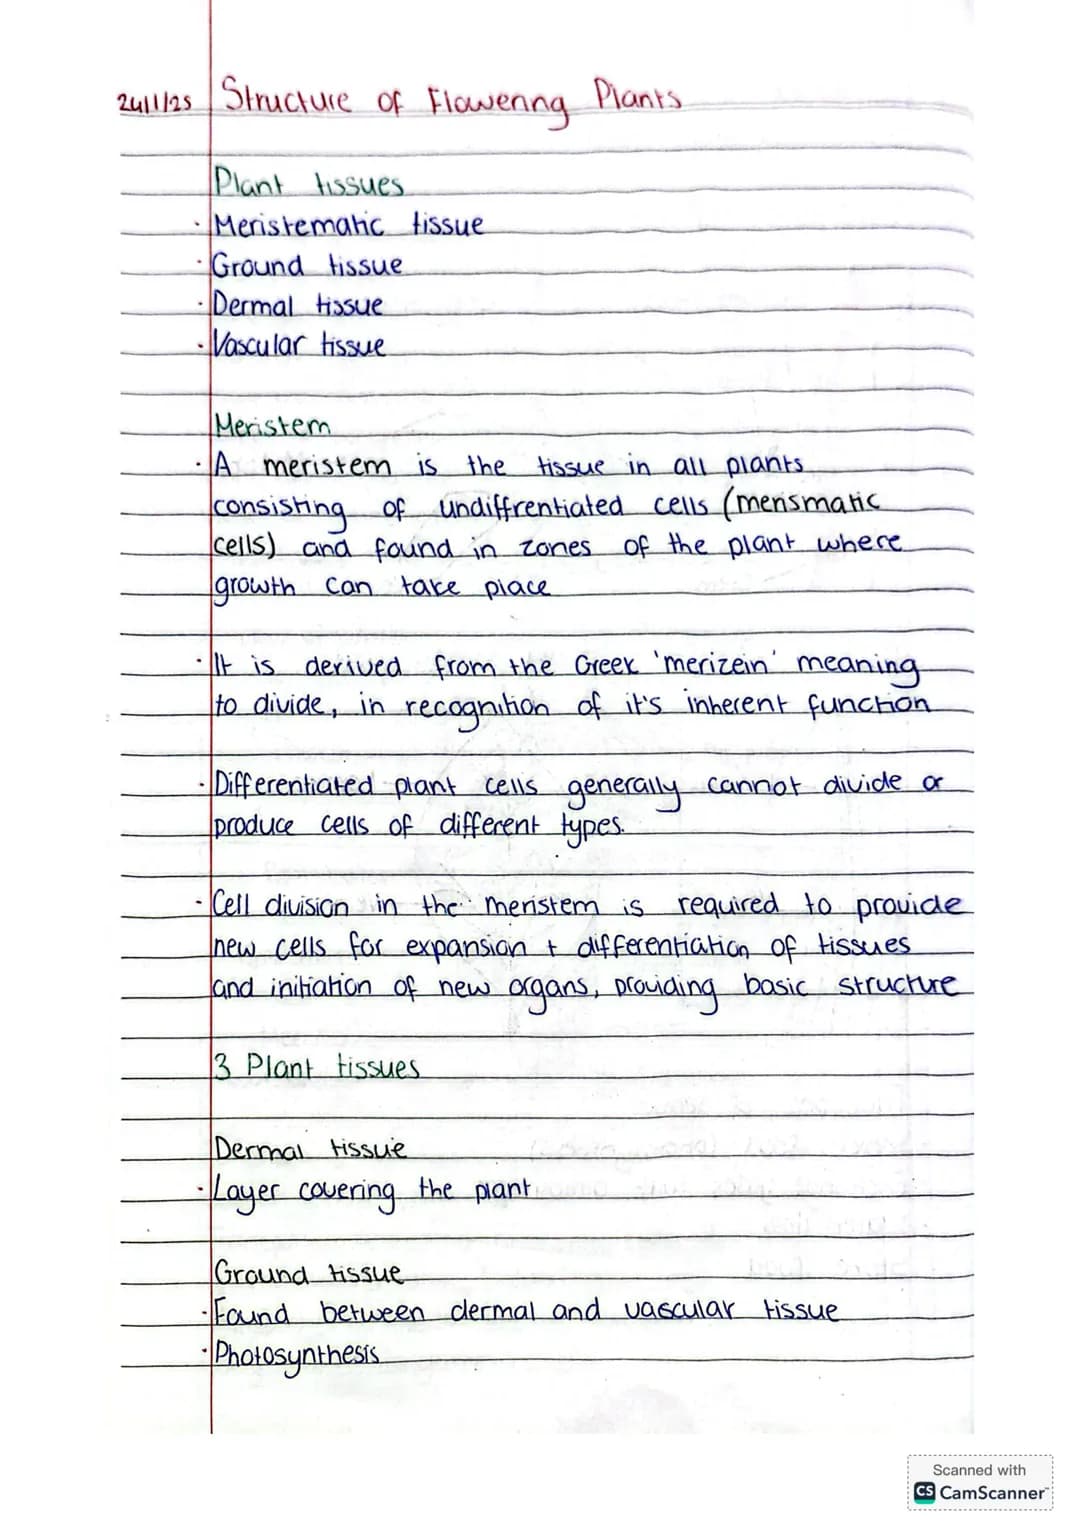 24/1/25 Structure of Flowering Plants
Plant tissues
· Meristematic tissue
· Ground tissue
· Dermal tissue
· Vascular tissue
Meristem
· A meristem is the tissue in all plants
consisting of undiffrentiated cells (merismatic
cells) and found in zones of the plant where
growth can take place
· It is derived from the Greek 'merizein' meaning
to divide, in recognition of it's inherent function
· Differentiated plant cells generally cannot divide or
produce cells of different types.
· Cell division in the meristem is required to provide
new cells for expansion + differentiation of tissues
and initiation of new organs, providing basic structure
3 Plant tissues
Dermal tissue
· Layer covering the plant
Ground tissue
· Found between dermal and vascular tissue
· Photosynthesis
Scanned with
CS CamScanner